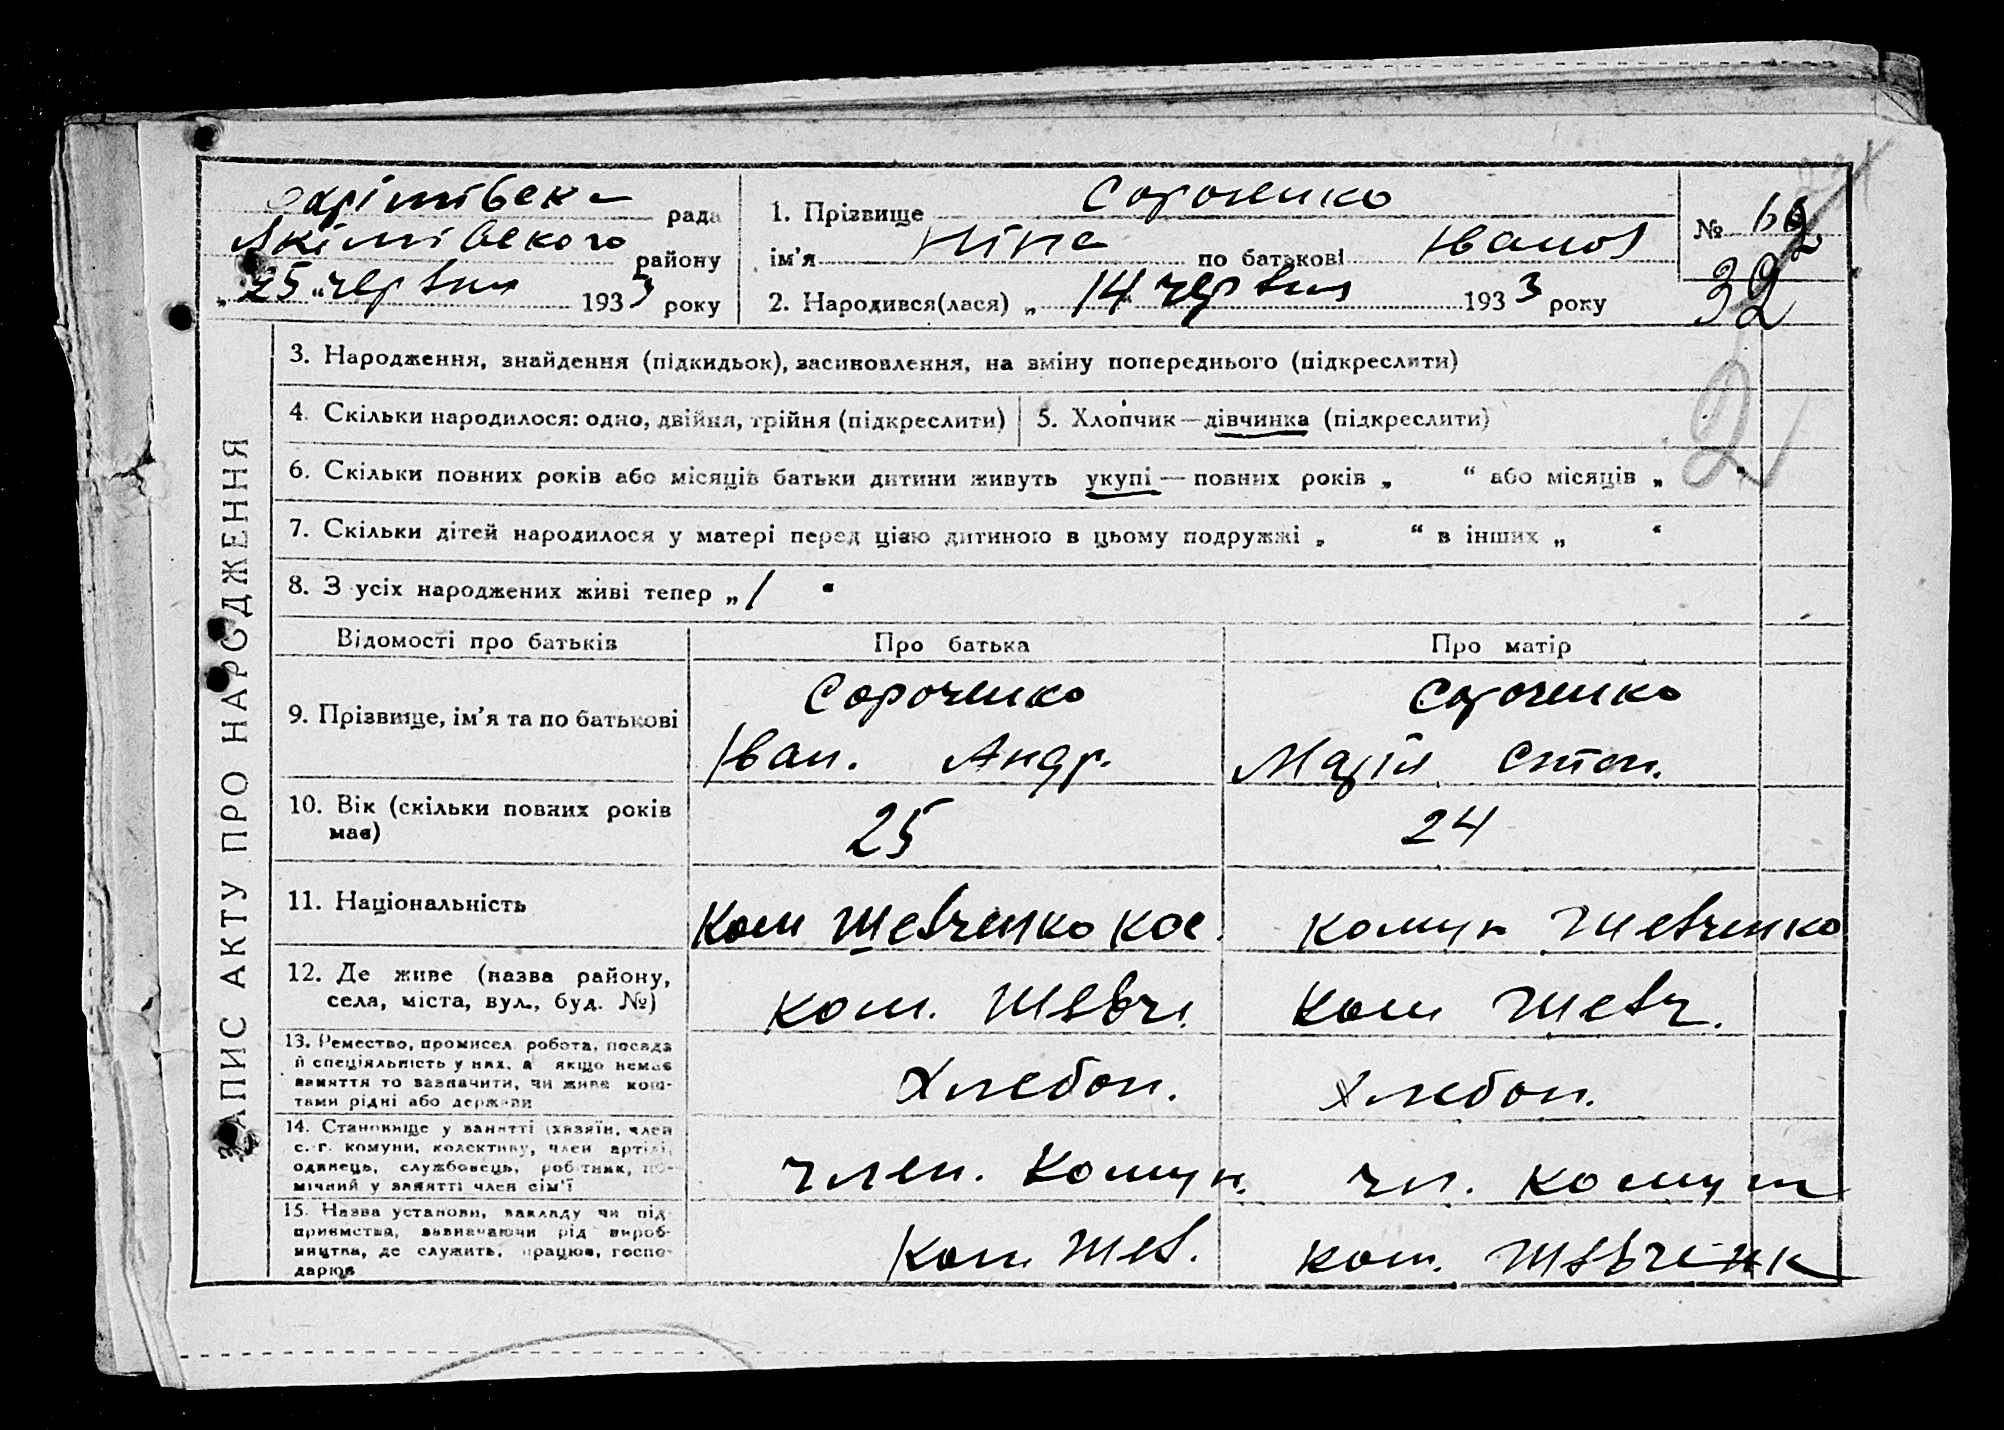 рада
Якімівського району
"25" червня 1933 року
1. Прізвище Сороченко
ім'я Ніна по батькові Іванов
2. Народився(лася) „14" червня 1933 року
№
32
2
ЗАПИС АКТУ ПРО НАРОДЖЕННЯ
3. Народження, знайдення (підкидьок), засиновлення, на зміну попереднього (підкреслити)
4. Скільки народилося: одно, двійня, трійня (підкреслити)
5. Хлопчик — дівчинка (підкреслити)
6. Скільки повних років або місяців батьки дитини живуть укупі — повних років „ “ або місяців „
7. Скільки дітей народилося у матері перед цією дитиною в цьому подружжі „ “ в інших „ “
8. З усіх народжених живі тепер „ 1 “
Відомості про батьків Про батька Про матір
9. Прізвище, ім'я та по батькові
Сороченко Сороченко
Іван. Андр. Марія Степ.
10. Вік (скільки повних років має)
25 24
11. Національність
Ком Шевченко Кос. комун Шевченко
12. Де живе (назва району, села, міста, вул., буд. №)
ком. Шевч. Ком Шевч.
13. Ремество, промисел, робота, посада
й спеціяльність у них, а якщо немає
заняття то зазначити, чи живе кош-
тами рідні або держави
Хлебоп. Хлебоп.
14. Становище у занятті (хазяїн, член
с.-г. комуни, колективу, член артілі,
одинець, службовець, робітник, по-
мічний у занятті член сім'ї
член. Комун. чл. комун
15. Назва установи, закладу чи під-
приємства, зазначаючи рід вироб-
ництва, де служить, працює, госпо-
дарює
Ком Шев. ком. Шевченк